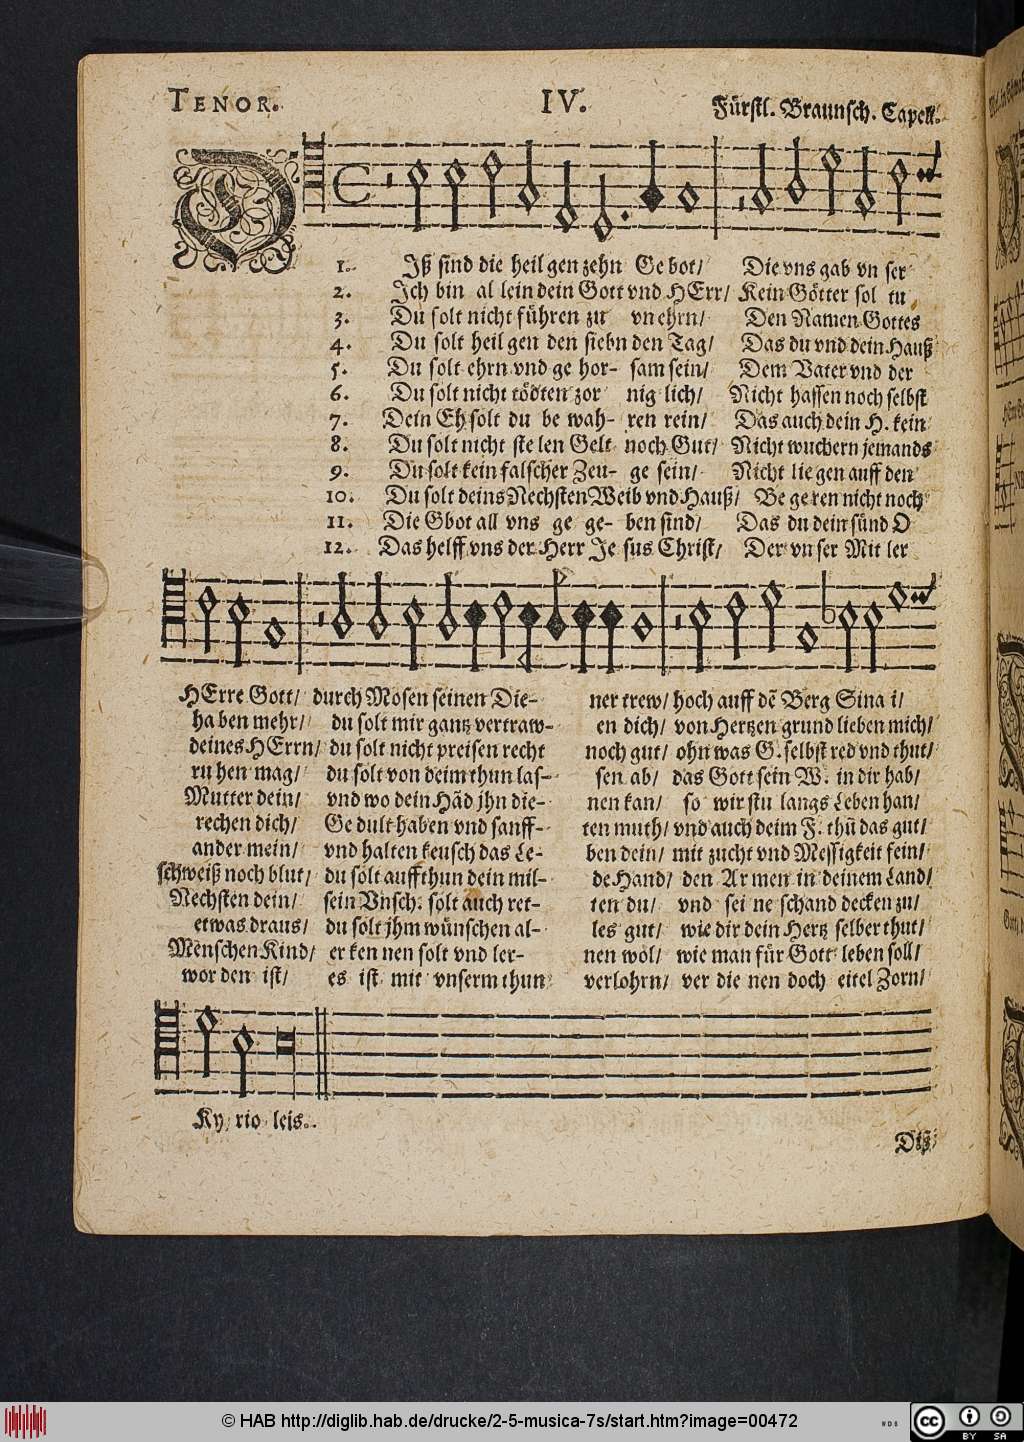 TENOR. IV. Fürstl. Braunsch. Capell.
D
1. Jß sind die heil gen zehn Ge bot/ Die vns gab vn ser
2. Ich bin al lein dein Gott vnd HErr/ Kein Götter sol tu
3. Du solt nicht führen zu vnehrn/ Den Namen Gottes
4. Du solt heil gen den siebn den Tag/ Das du vnd dein Hauß
5. Du solt ehrn vnd ge hor- sam sein/ Dem Vater vnd der
6. Du solt nicht tödten zor nig lich/ Nicht hassen noch selbst
7. Dein Eh solt du be wah- ren rein/ Das auch dein H. kein
8. Du solt nicht ste len Gelt noch Gut/ Nicht wuchern jemands
9. Du solt kein falscher Zeu- ge sein/ Nicht lie gen auff den
10. Du solt deins Nechsten Weib vnd Hauß/ Be ge ren nicht noch
11. Die Gbot all vns ge ge- ben sind/ Das du dein sünd O
12. Das helff vns der Herr Je sus Christ/ Der vn ser Mit ler
HErre Gott/ durch Mosen seinen Die- ner trew/ hoch auff dẽ Berg Sina i/
ha ben mehr/ du solt mir gantz vertraw- en dich/ von Hertzen grund lieben mich/
deines HErrn/ du solt nicht preisen recht noch gut/ ohn was G. selbst red vnd thut/
ru hen mag/ du solt von deim thun las- sen ab/ das Gott sein W. in dir hab/
Mutter dein/ vnd wo dein Hãd jhn die- nen kan/ so wirstu langs Leben han/
rechen dich/ Ge dult haben vnd sanff- ten muth/ vnd auch deim F. thũ das gut/
ander mein/ vnd halten keusch das Le- ben dein/ mit zucht vnd Messigkeit fein/
schweiß noch blut/ du solt auff thun dein mil- de Hand/ den Ar men in deinem Land/
Nechsten dein/ sein Vnsch: solt auch ret- ten du/ vnd sei ne schand decken zu/
etwas draus/ du solt jhm wünschen al- les gut/ wie dir dein Hertz selber thut/
Menschen Kind/ er ken nen solt vnd ler- nen wol/ wie man für Gott leben soll/
wor den ist/ es ist mit vnserm thun verlohrn/ ver die nen doch eitel Zorn/
Ky rio leis.
Diß
© HAB http://diglib.hab.de/drucke/2-5-musica-7s/start.htm?image=00472
cc BY SA